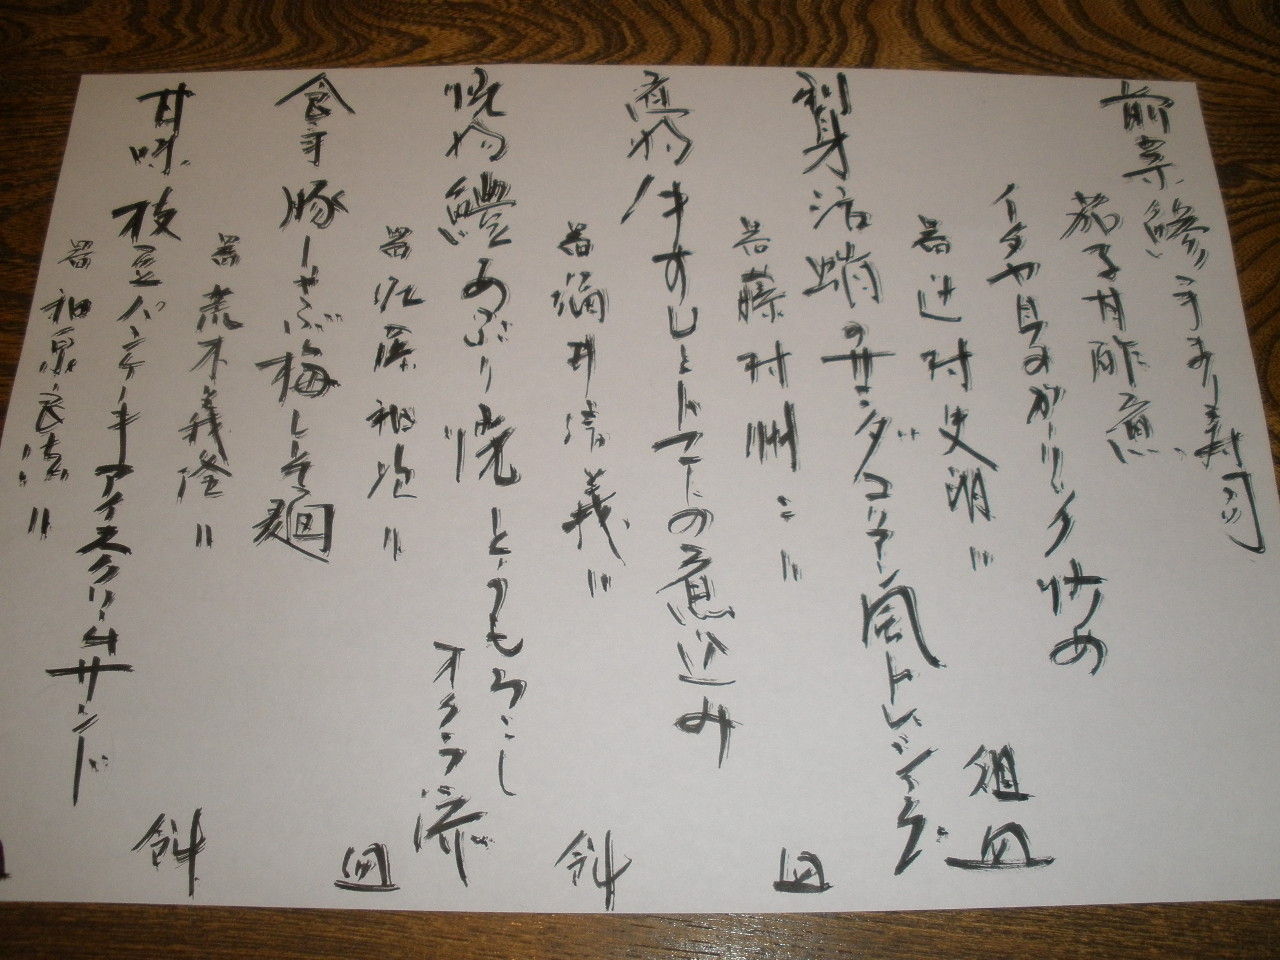 前菜 鯵手まり寿司
茄子甘酢煮
イタヤ貝のガーリック炒め
器 辻村史朗 〃 組皿
刺身 活蛸のサンダコリアー風ドレッシング
器 藤村州二 〃 皿
煮物 牛すじとトマトの煮込み
器 酒井清義 〃 鉢
焼物 鱧あぶり焼 とうもろこし
オクラ 添
器 佐藤 〃 皿
食事 豚しゃぶ梅しそ麺
器 荒木義隆 〃 鉢
甘味 枝豆パンケーキアイスクリームサンド
器 良法 〃